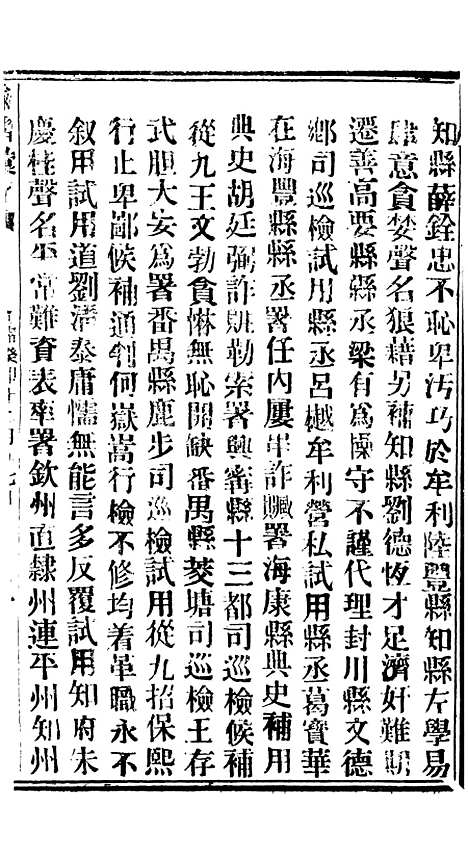 知縣薛銓忠不恥卑汚巧於牟利陸豐縣知縣左學易
肆意貪婪聲名狼藉另補知縣劉德恆才足濟奸難期
遷善高要縣縣丞梁有爲操守不謹代理封川縣文德
鄉司巡檢試用縣丞呂樾牟利營私試用縣丞葛寳華
在海豐縣縣丞署任內屢串詐贓署海康縣典史補用
典史胡廷弼詐贓勒索署興寗縣十三都司巡檢候補
從九王文勃貪惏無恥開缺番禺縣茭塘司巡檢王存
式胆大妄爲署番禺縣鹿步司巡檢試用從九招保熙
行止卑鄙候補通判何嶽嵩行檢不修均着革職永不
叙用試用道劉濤泰庸懦無能言多反覆試用知府朱
慶桂聲名平常難資表率署欽州直隸州連平州知州